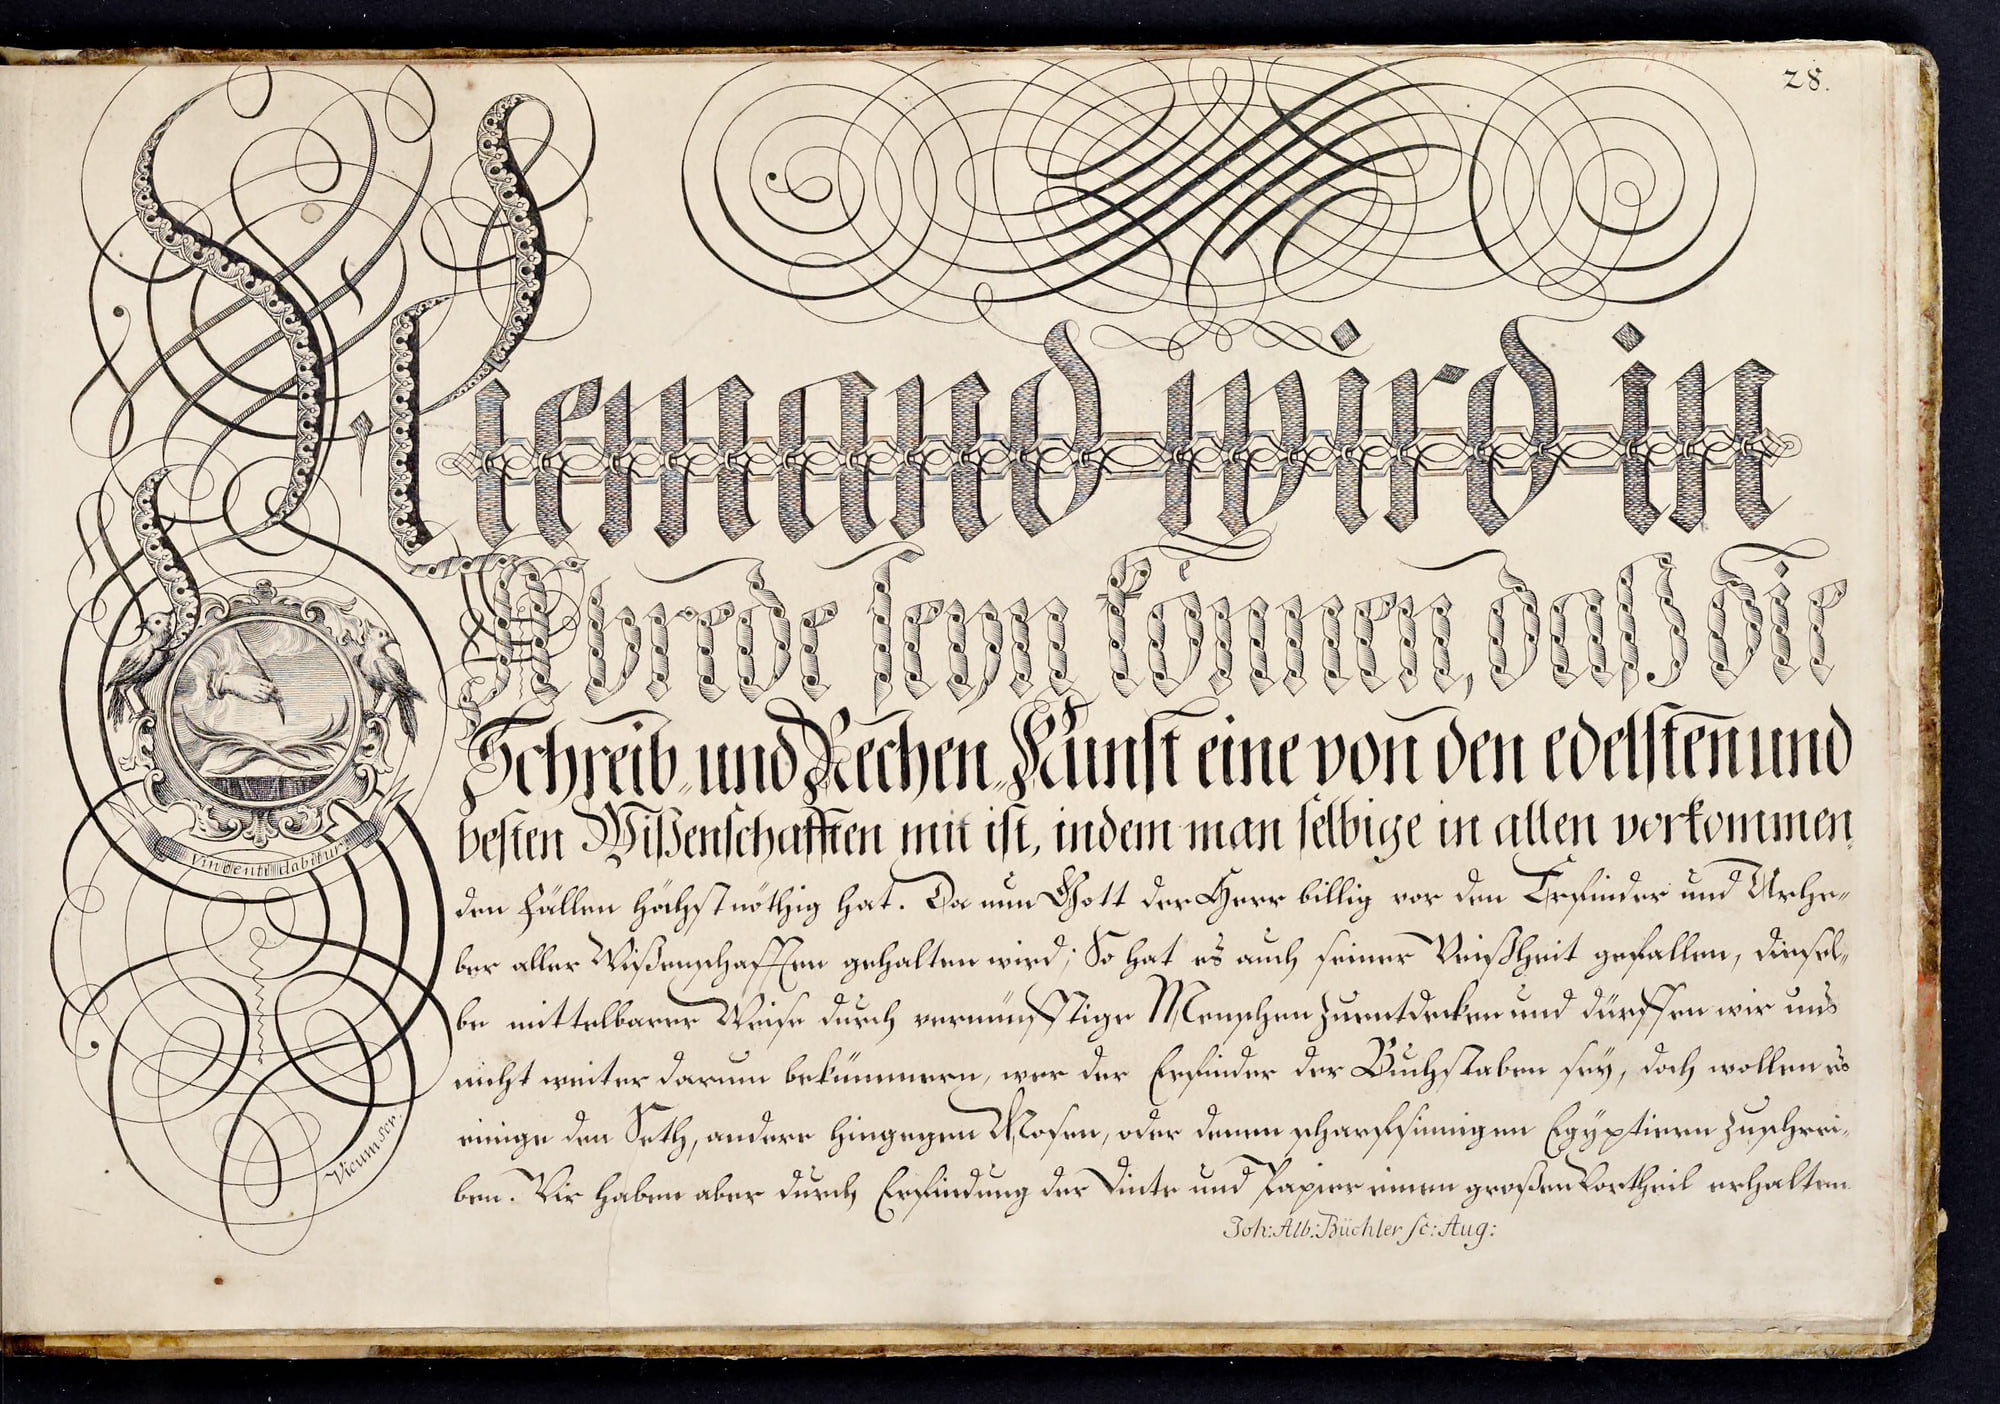 28.
Niemand wird in
Abrede seyn können, daß die
Schreib- und Rechen-Kunst eine von den edelsten und
besten Wißenschafften mit ist, indem man selbige in allen vorkommen-
den Fällen höchst nöthig hat. Da nun Gott der Herr billig vor den Erfinder und Urhe-
ber aller Wißenschafften gehalten wird; So hat es auch seiner Weißheit gefallen, diesel-
be mittelbarer Weise durch vernünfftige Menschen zu entdecken und dürffen wir uns
nicht weiter darum bekümmern, wer der Erfinder der Buchstaben sey, doch wollen es
einige den Seth, andere hingegen Mosen, oder denen scharffsinnigen Egyptiern zuschrei-
ben. Wir haben aber durch Erfindung der Dinte und Papier einen großen Vortheil erhalten
Vincenti dabitur
Vicum scr.
Joh: Alb: Büchler sc: Aug: